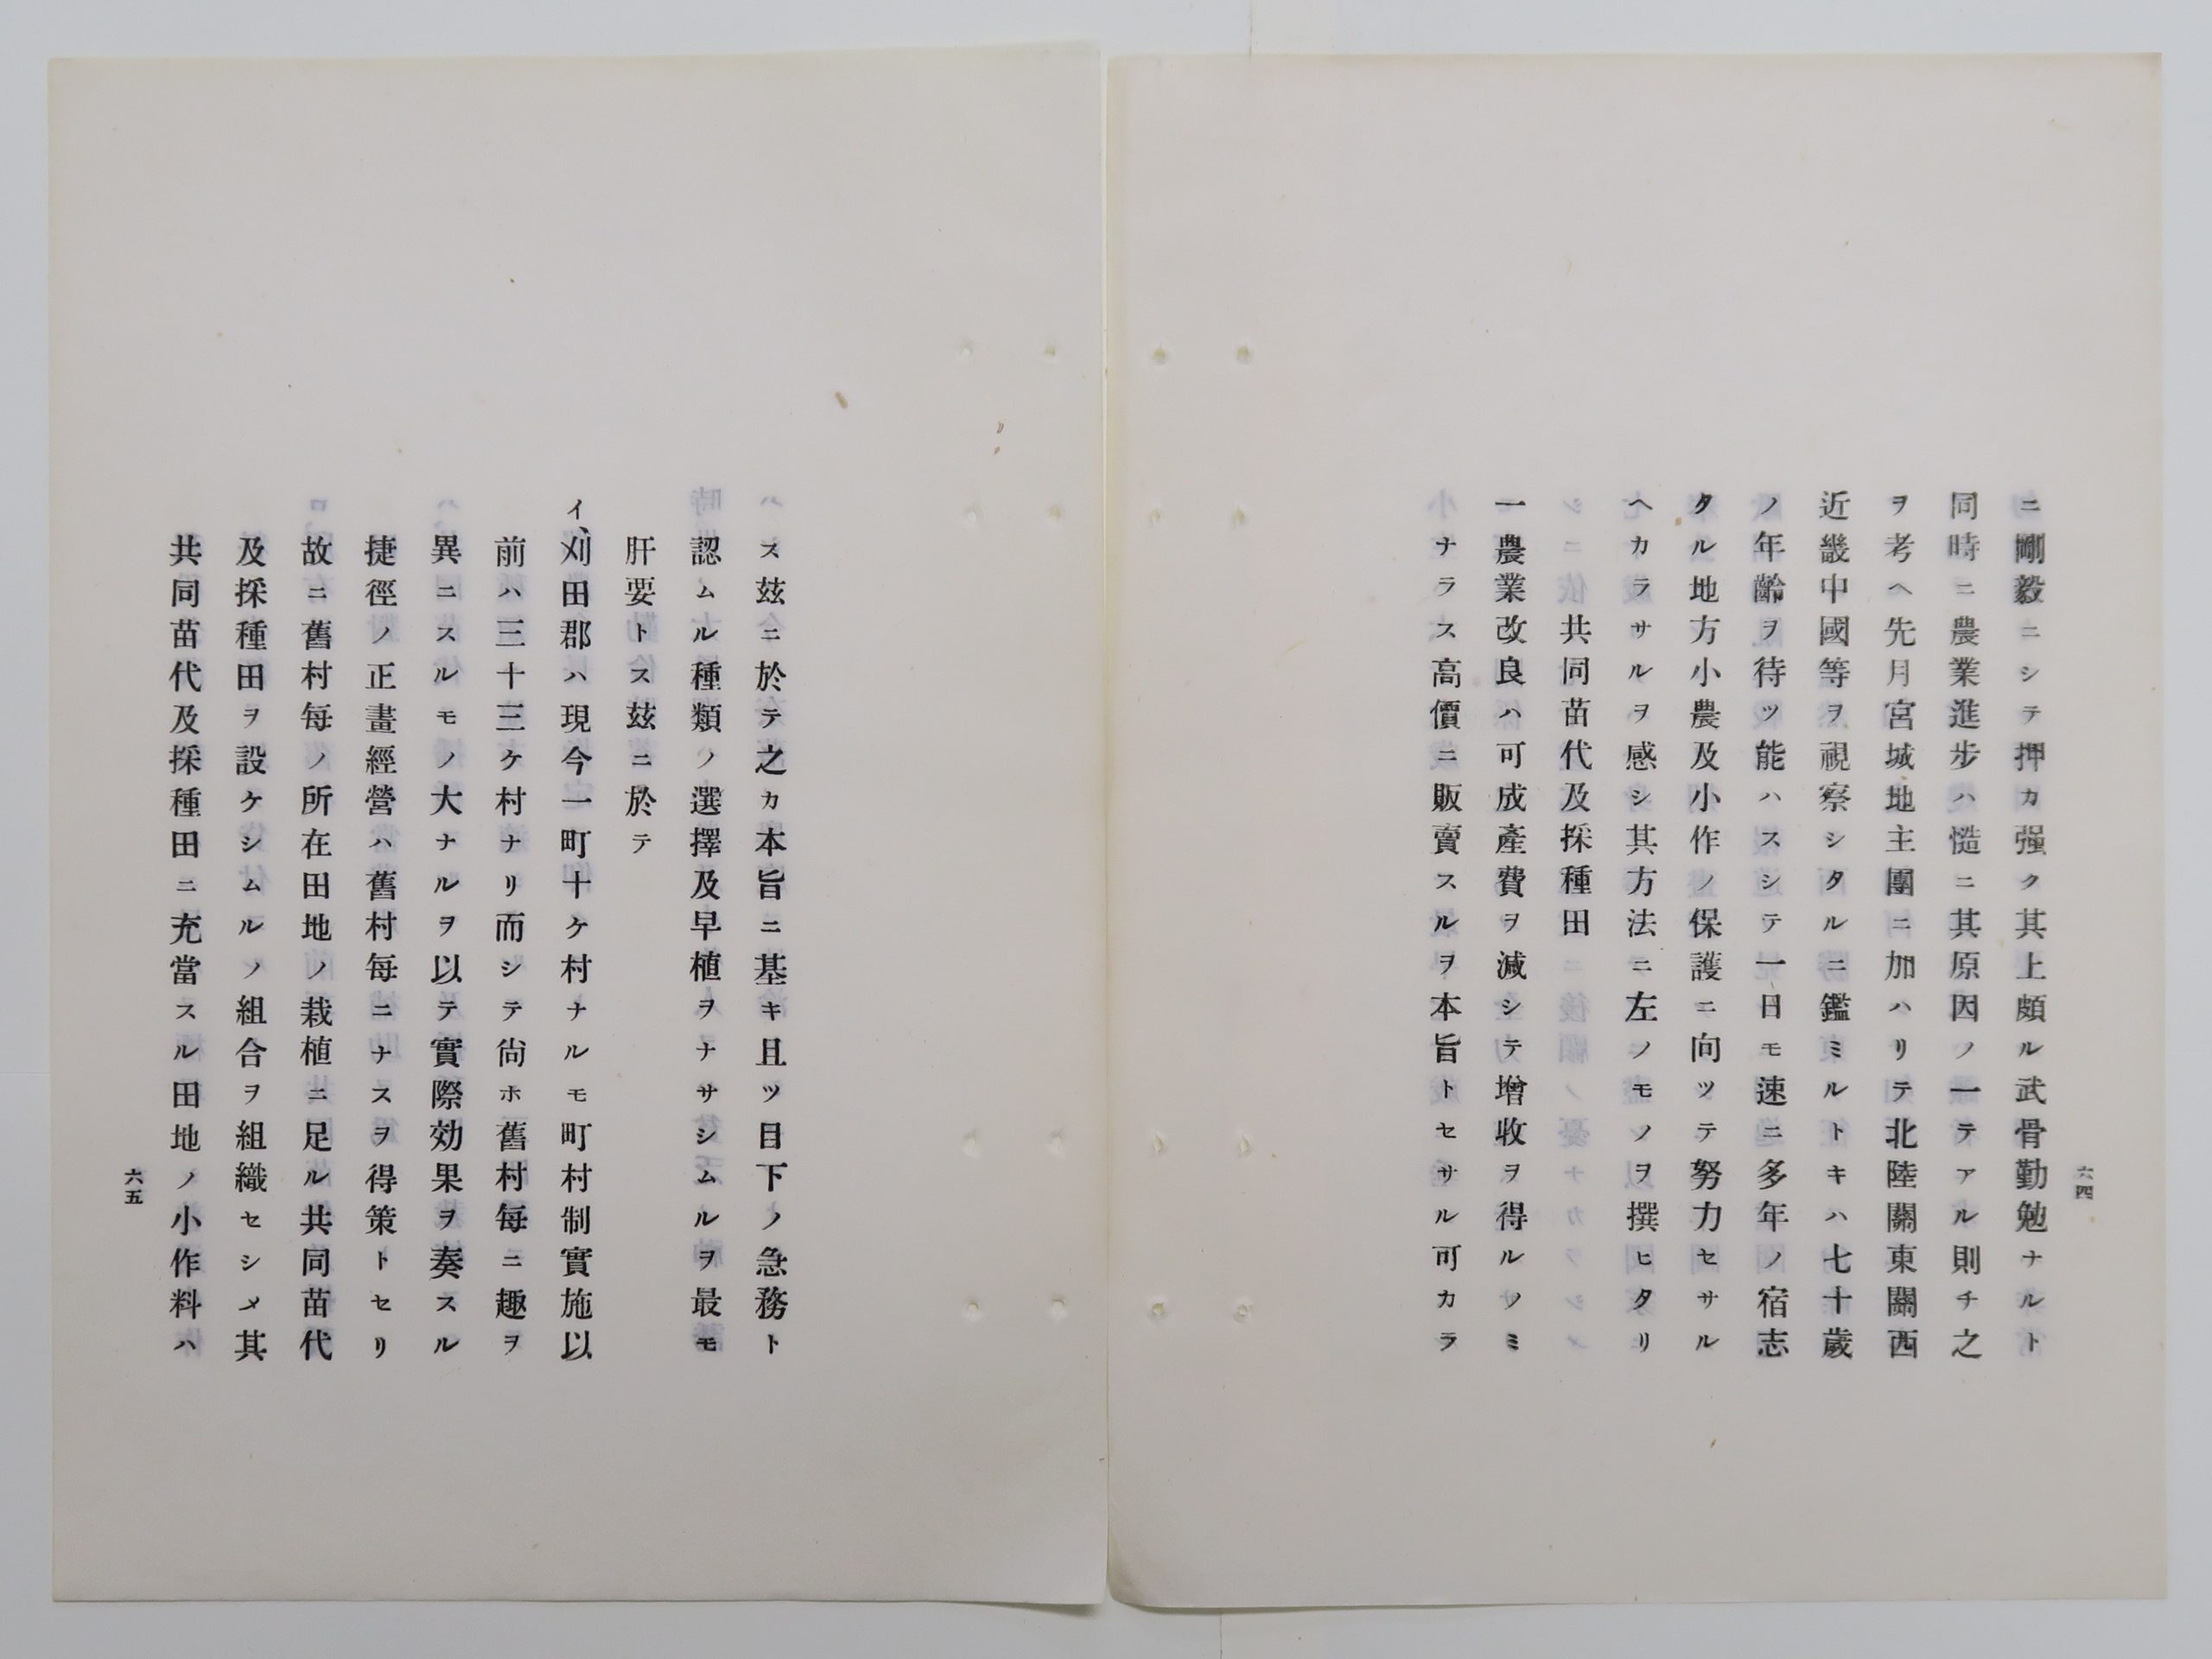 ニ剛毅ニシテ押カ强ク其上頗ル武骨勤勉ナルト
同時ニ農業進步ハ慥ニ其原因ノ一テアル則チ之
ヲ考ヘ先月宮城地主團ニ加ハリテ北陸關東關西
近畿中國等ヲ視察シタルニ鑑ミルトキハ七十歲
ノ年齡ヲ待ツ能ハスシテ一日モ速ニ多年ノ宿志
タル地方小農及小作ノ保護ニ向ツテ努力セサル
ヘカラサルヲ感シ其方法ニ左ノモノヲ撰ヒタリ
共同苗代及採種田
一農業改良ハ可成產費ヲ減シテ增收ヲ得ルノミ
ナラス高價ニ販賣スルヲ本旨トセサル可カラ
六四
ス玆ニ於テ之カ本旨ニ基キ且ツ目下ノ急務ト
認ムル種類ノ選擇及早植ヲナサシムルヲ最モ
肝要トス玆ニ於テ
イ、刈田郡ハ現今一町十ケ村ナルモ町村制實施以
前ハ三十三ケ村ナリ而シテ尙ホ舊村每ニ趣ヲ
異ニスルモノノ大ナルヲ以テ實際効果ヲ奏スル
捷徑ノ正畫經營ハ舊村每ニナスヲ得策トセリ
故ニ舊村每ノ所在田地ノ栽植ニ足ル共同苗代
及採種田ヲ設ケシムルノ組合ヲ組織セシメ其
共同苗代及採種田ニ充當スル田地ノ小作料ハ
六五